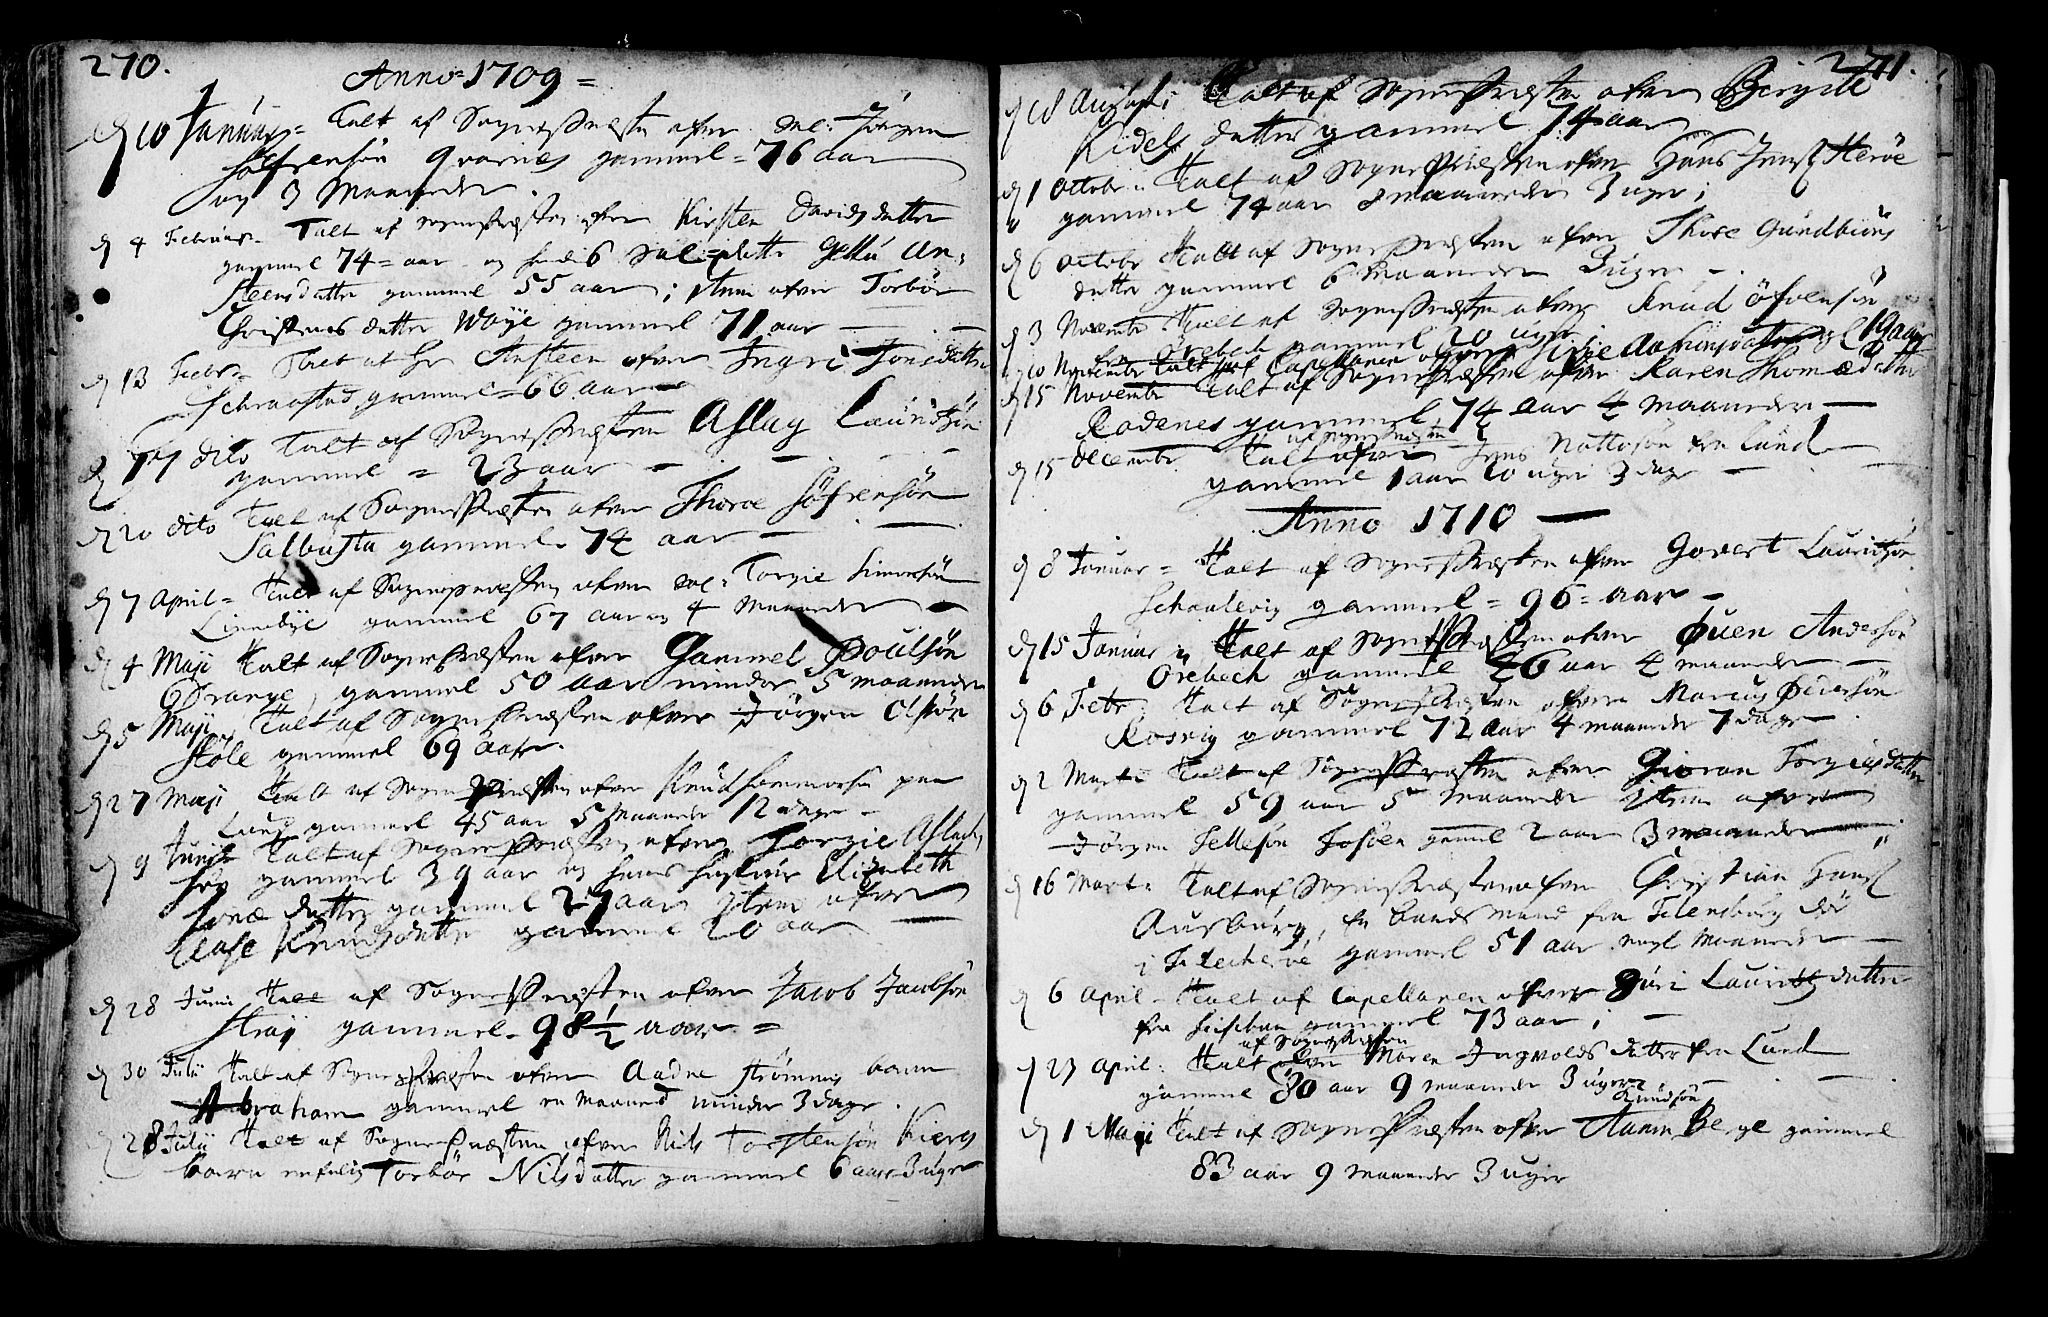 270.
Anno 1709
d 10 Januarij Talt af Sognepræsten ofver Sal: Jörgen
Söfrensön gammel 76 aar
og 3 Maaneder.
d 4 Februar. Talt af sognepræsten ofver Kirsten Davidsdatter
gammel 74 aar og hendis datter An-
steensdatter gammel 55 aar; item ofver Torbör
Christensdatter Woÿe gammel 71 aar
d 13 Febr. Talt af Hr Ansteen ofver Ingri Jonsdatter
gammel 66 aar
d 17 dito Talt af Sognepræsten Aslag Lauridsön
gammel 23 aar
d 20 dito Talt af Sognepræsten ofver Thore Söfrensön
Salbusta gammel 74 aar
d 7 April Talt af Sognepræsten ofver Sal: Torgie Simonsön
gammel 67 aar og 4 Maaneder
d 4 Maji Talt af Sognepræsten ofver Gammel Poulsön
gammel 50 aar minder 5 maaneder
d 5 Maji Talt af Sognepræsten ofver Jörgen Olssön
Stöle gammel 69 aar.
d 27 Maji Talt af Sognepræsten ofver Knud paa
Lund gammel 45 aar 5 Maaneder 12 dage
d 9 Junij Talt af Sognepræsten ofver Torgie Aslach-
sön gammel 39 aar og hans hustrue Elizabeth
datter gammel 27 aar item ofver
Knudsdatter gammel 20 aar
d 28 Junij Talt af Sognepræsten ofver Jacob Jacobsön
Straÿ gammel 98½ aar
d 30 Julii Talt af Sognepræsten ofver Aadne Strömmis barn
Abraham gammel en maaned minder 3 dage.
d 28 Julij Talt af Sognepræsten ofver Nils Torstensön Kiergs
barn Torbör Nilsdatter gammel 6 aar 3 uger
271.
d 18 Augusti Talt af Sognepræsten ofver Birgite
datter gammel 74 aar
d 1 Octobr. Talt af Sognepræsten ofver Hans Jenss Heröe
gammel 74 aar 8 maaneder 3 uger;
d 6 Octobr Talt af Sognepræsten ofver Thore Gundbiörs
datter gammel 6 Maaneder 3 uger
d 3 Novembr Talt af Sognepræsten ofver Knud Öfvensön
Örebech gammel 20 uger
d 10 November Talt af Capellanen ofver gl 19 aar
d 15 Novembr Talt af Sognepræsten ofver Karen Thomædatter
Rodenes gammel 74 aar 4 maaneder
af Sognepræsten
d 15 Decembr Talt ofver Jens Nottosön fra Lund
gammel 1 aar 20 uger 3 dage
Anno 1710
d 8 Januar Talt af Sognepræsten ofver Govert Lauridsön
Schaalevig gammel 96 aar
d 15 Januar Talt af Sognepræsten ofver Öuen Andersön
Örebech gammel 26 aar 4 maaneder
d 6 Febr: Talt af Sognepræsten ofver Marcus Pedersön
Rosvig gammel 72 aar 4 maaneder 7 dage
d 2 Marti Talt af Sognepræsten ofver Gioron Torgiusdatter
gammel 59 aar 5 maaneder item ofver
Jörgen Tellefsön Fosöen gamel 2 aar 3 maaneder
d 16 Marti Talt af Sognepræsten ofver Christian Hansö
Ausburg, en baadsmand fra Flensburg dör
i Flecheröe gammel 51 aar nogl Maaneder
d 6 April Talt af Capellanen ofver Guri Lauridsdatter
fra gammel 73 aar;
af Sognepræsten
d 23 April: Talt ofver Maren Ingvoldsdatter fra Lund
gammel 80 aar 9 maaneder 3 uger
Knudsön
d 1 Maij Talt af Sognepræsten ofver Aanen Berge gammel
83 aar 9 Maaneder 3 uger